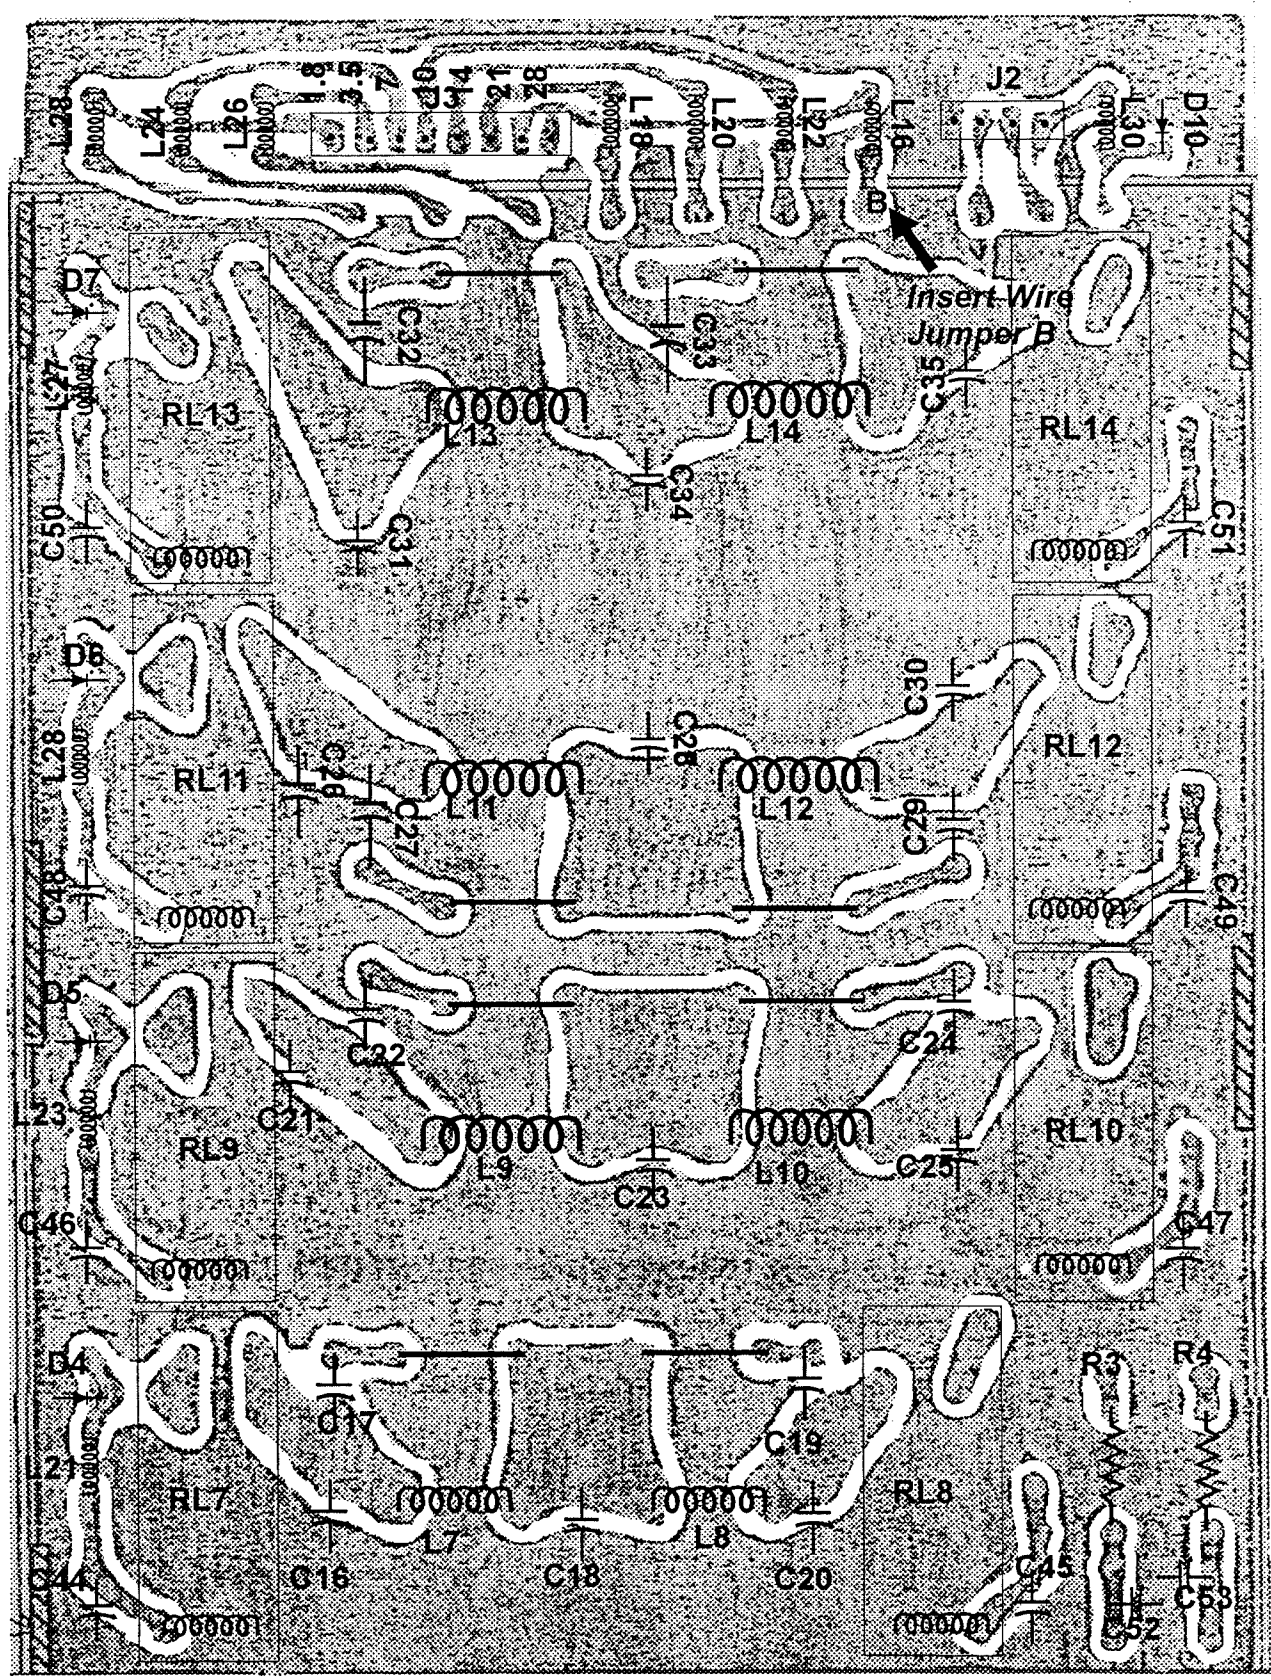 L28
L24
L26
1.8
3.5
7
10
14
21
28
J3
L18
L20
L22
L16
J2
L30
D10
B
Insert Wire
Jumper B
D7
C32
C33
C35
L27
RL13
L13
L14
RL14
C34
C50
C31
C51
D6
C30
L28
RL11
C26
C27
L11
C28
L12
C29
RL12
C48
C49
D5
C22
C24
L23
C21
RL9
L9
C23
L10
C25
RL10
C46
C47
D4
C17
C19
R3
R4
L21
RL7
L7
L8
RL8
C44
C16
C18
C20
C45
C52
C53